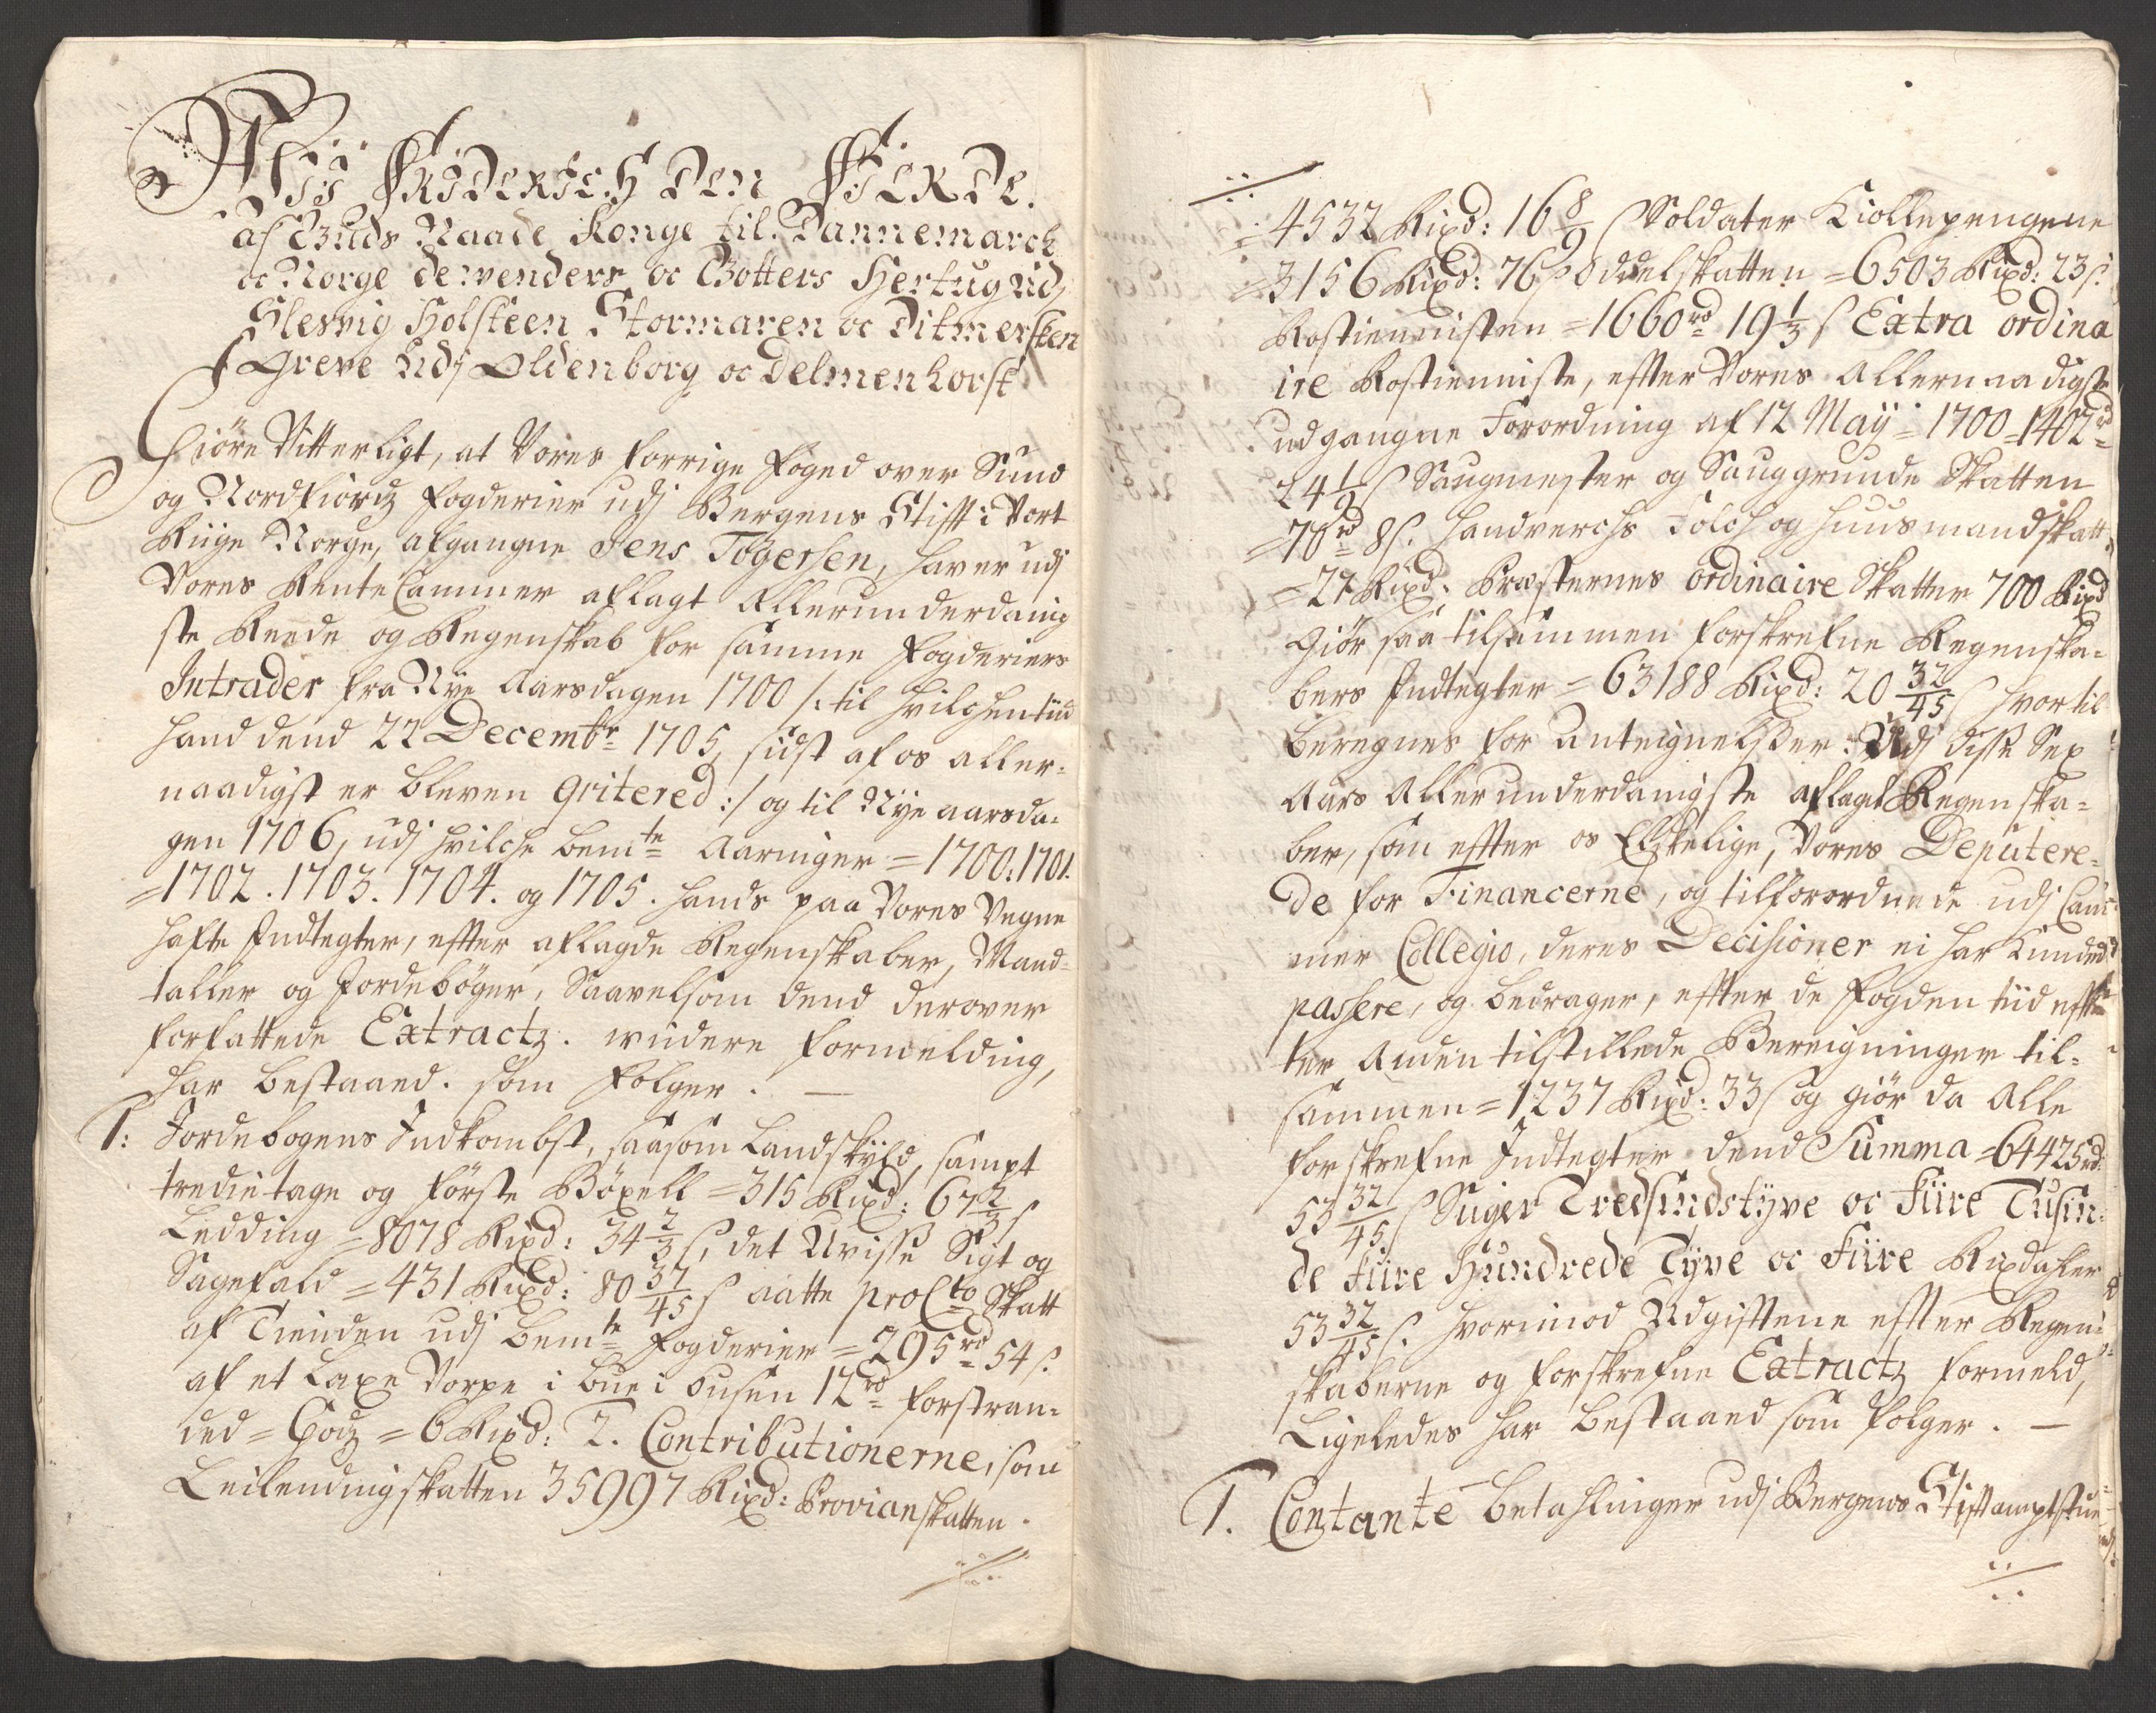 Wii Friderich den Fierde.
af Guds Naade Konge til Dannemarch
oc Norge de Wenders oc Gotters Hertug udj
Slesvig Holsteen Stormaren oc Ditmersken
Greve udj Oldenborg oc Delmenhorst
Giöre Vitterligt, at Vores forrige Foged over Sund
og Nordfiordz Fogderier udj Bergens Stift i Vort
Riige Norge, afgangne Jens Togersen, haver udj
Vores Rente Cammer aflagt Allerunderdanig
ste Reede og Regenskab for samme Fogderiers
Intrader fra Nye Aarsdagen 1700 /: til hvilchen tiid
hand dend 22 Decembr 1705, sidst af os aller-
naadigst er bleven qvitered :/ og til Nye aarsda-
gen 1706, udj hvilche bemte Aaringer = 1700. 1701.
= 1702. 1703. 1704. og 1705. hands paa Vores Vegne
hafte Indtegter, efter aflagde Regenskaber, Mand-
taller og Jordebøger, Saavelsom dend derover
forfattede Extractz. widere formelding,
har bestaaed. som følger. —
1: Jordebogens Indkombst, saasom Landskÿld, sampt
tredietage og første Bøxell = 315 Rixd: 67 2/3 s
Ledding = 8078 Rixd: 34 2/3 s, det Uvisse Sigt og
Sagefald = 431 Rixd: 80 37/45 s aatte pro Cto Skatt
af Tienden udj bemte Fogderier = 295 rd 54 s.
af et Laxe Vorpe i bue i ousen 12 rd forstran-
ded = Godz = 6 Rixd: 2. Contributionerne, som
Leilendingskatten 35997 Rixd: Provianskatten.
= 4532 Rixd: 16 8/9 s Soldater Kiollepengene
= 3156 Rixd: 76 s Oddelskatten = 6503 Rixd: 23 s.
Rostiennisten = 1660 rd 19 1/3 s Extra ordina
ire Rostienniste, efter Vores Allernaadigste
udgangne Forordning af 12 Maÿ = 1700 = 1402 rd
24 1/2 s Saugmester og Sauggrunde Skatten
= 70 rd 8 s. Handverchs Folch og Huusmandskatt
= 27 Rixd: Præsternes ordinaire Skatter 700 Rixd
Giör saa tilsammen forskrefne Regenska-
bers Indtegter = 63188 Rixd: 20 32/45 s hvortil
beregnes for Anteignelsser: Udj disse Sex
Aars Allerunderdanigste aflagt Regenska-
ber, som efter os Elskelige, Vores Deputere-
de for Financerne, og tilforordnede udj Cam-
mer Collegio, deres Decisioner ei har kunded
passere, og bedrager, efter de Fogden tiid eff-
ter anden tilstillede Bereigninger til-
sammen = 1237 Rixd: 33 s og giör da Alle
forskrefne Indtegter dend Summa = 64425 rd:
53 32/45 s Siiger Tredsindstÿve oc Fiire Tusin-
de Fiire Hundrede Tÿve oc Fiire Rixdahler
53 32/45 s. Hvorimod Udgiftene efter Regen-
skaberne og forskrefne Extractz formeld,
Ligeledes har bestaaed som følger. —
1. Contante betahlinger udj Bergens Stiftamptstue